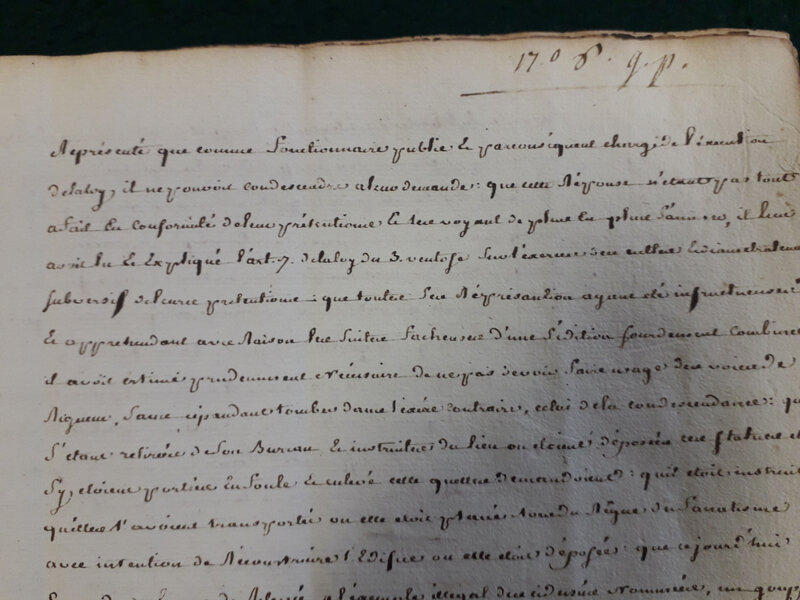 17.0 8. g.p.
Représenté que comme fonctionnaire public et par conséquent chargé de l'éxecution
delaloy, il ne pouvoit condescendre a leur demande: que cette Réponse n'étant pas tout
afait En conformité de leurs prétentions Et les voyant de plus En plus il leur
avoit lu Et Expliqué l'art. 7. delaloy du 3. ventose sur l'éxercice des cultes Ediametralement
subversif de leurs pretentions: que toutes ses Représantations ayant été infructueuses
Et apprehendant avec Raison les suites facheuses d'une Sédition sourdement combinée
il avoit estimé prudemment Nécéssaire de ne pas devoir faire usage des voies de
Rigueur, sans cependant tomber dans l'éxcés contraire, celui de la condescendance: qu
s'étant retirées de son Bureau Et instruites du lieu ou étoient déposées ces statues et
s'y étoient portées En foule Et enlevé celle quelles demandoient: qu'il étoit instruit
quélles l'avoient transportée ou elle étoit placée lors du Régne du fanatisme
avec intention de Réconstruire l'Edifice ou elle étoit déposée: que cejourd'hui
a l'éxemple illegal des cidessus Nommées, un